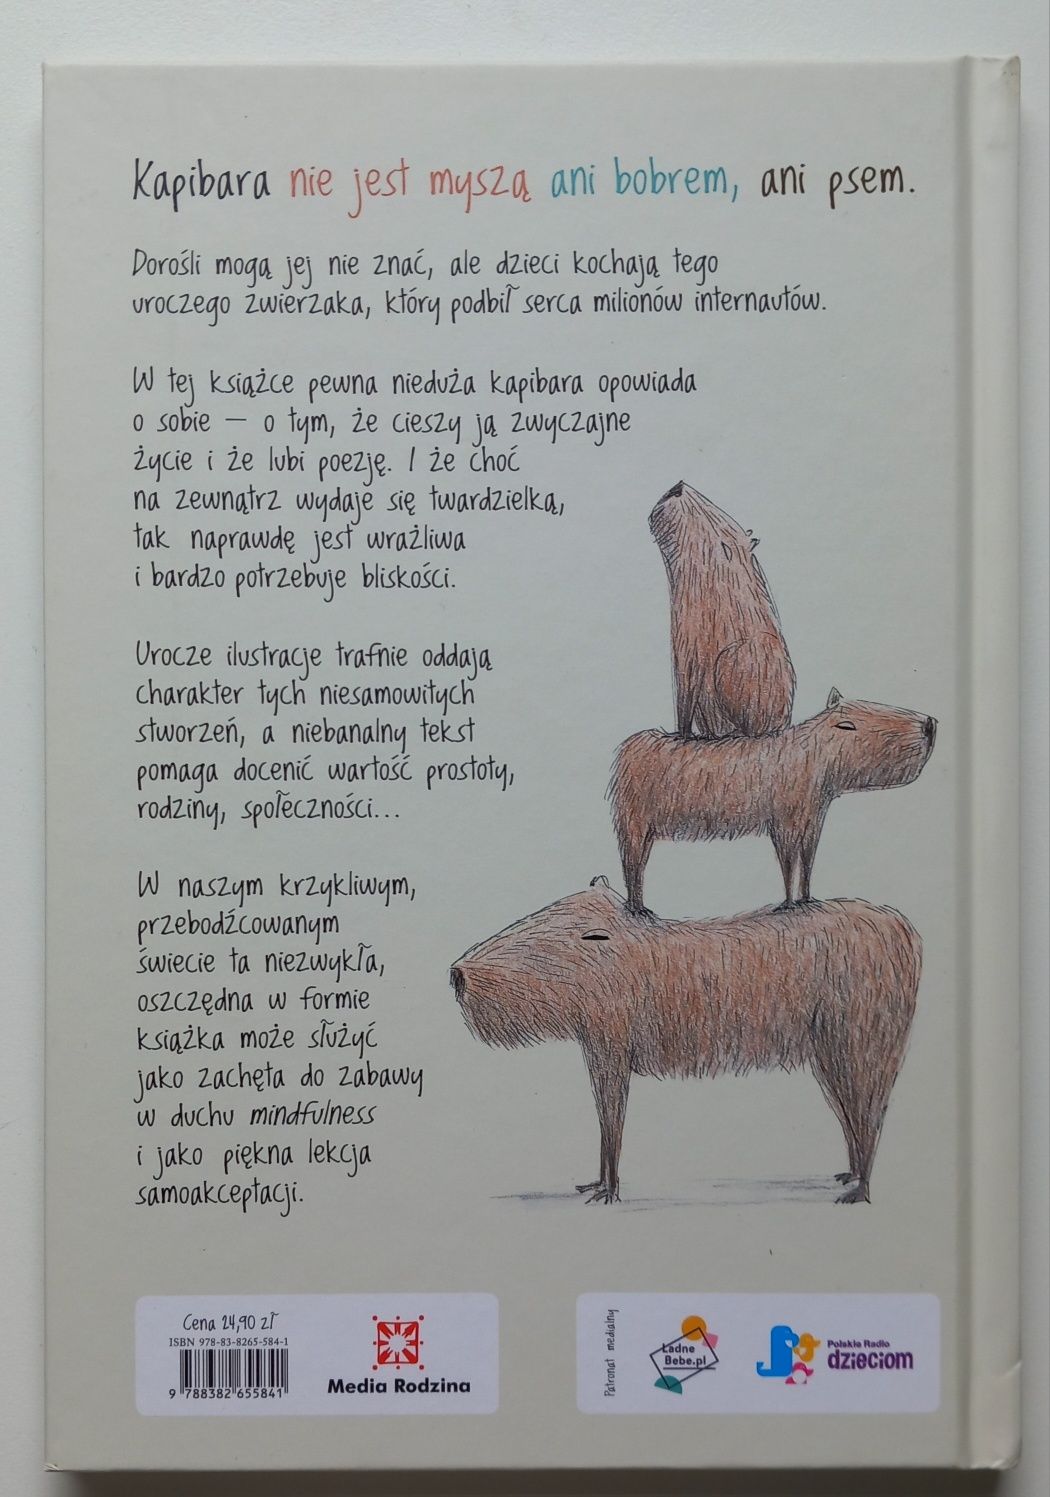 Kapibara nie jest myszą ani bobrem, ani psem.
Dorośli mogą jej nie znać, ale dzieci kochają tego
uroczego zwierzaka, który podbił serca milionów internautów.
W tej książce pewna nieduża kapibara opowiada
o sobie — o tym, że cieszy ją zwyczajne
życie i że lubi poezję. I że choć
na zewnątrz wydaje się twardzielką,
tak naprawdę jest wrażliwa
i bardzo potrzebuje bliskości.
Urocze ilustracje trafnie oddają
charakter tych niesamowitych
stworzeń, a niebanalny tekst
pomaga docenić wartość prostoty,
rodziny, społeczności...
W naszym krzykliwym,
przebodźcowanym
świecie ta niezwykła,
oszczędna w formie
książka może służyć
jako zachęta do zabawy
w duchu mindfulness
i jako piękna lekcja
samoakceptacji.
Cena 24,90 zł
ISBN 978-83-8265-584-1
9 788382 655841
Media Rodzina
Patronat medialny
Ładne
Bebe.pl
Polskie Radio
dzieciom